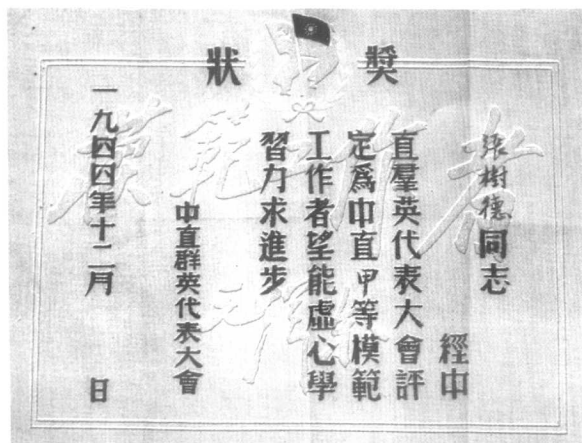 獎狀
張樹德同志
經中
直羣英代表大會評
定爲中直甲等模範
工作者望能虛心學
習力求進步
中直群英代表大會
一九四四年十二月 日
模範工作者